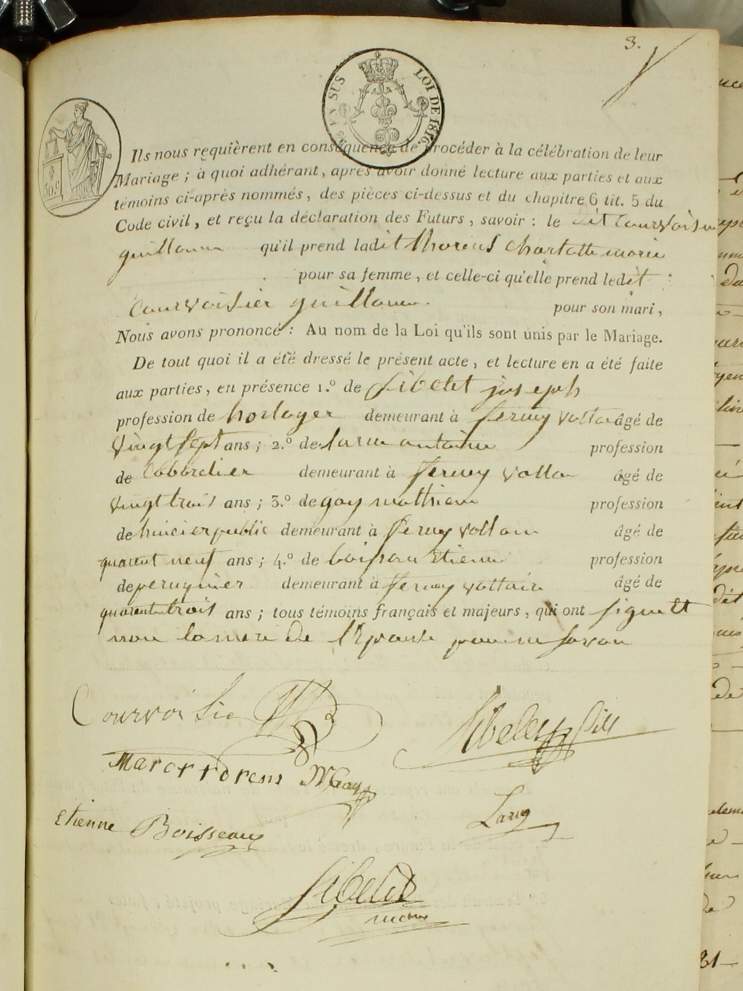 3.
EN SUS LOI DE 1816.
Ils nous requièrent en conséquence de procéder à la célébration de leur
Mariage ; à quoi adhérant, après avoir donné lecture aux parties et aux
témoins ci-après nommés, des pièces ci-dessus et du chapitre 6 tit. 5 du
Code civil, et reçu la déclaration des Futurs, savoir : le dit Courvoisier
guillaume qu'il prend ladit thorens charlotte marie
pour sa femme, et celle-ci qu'elle prend ledit
Courvoisier guillaume pour son mari,
Nous avons prononcé : Au nom de la Loi qu'ils sont unis par le Mariage.
De tout quoi il a été dressé le présent acte, et lecture en a été faite
aux parties, en présence 1.º de Sibelit joseph
profession de horloger demeurant à ferney voltaire âgé de
vingt sept ans ; 2.º de antoine profession
de demeurant à ferney voltaire âgé de
vingt trois ans ; 3.º de gay mathieu profession
de huicier public demeurant à ferney voltaire âgé de
quarent neuf ans ; 4.º de boisson Etienne profession
de peruquier demeurant à ferney voltaire âgé de
quarent trois ans ; tous témoins français et majeurs, qui ont signé et
non la mere de l'Epouse pour ne savoir
Courvoisie
Marc thorens MGay
Etienne Boisseau